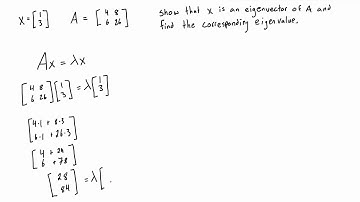 x = [1 3] A = [4 8 6 26] Show that x is an eigenvector of A and
find the corresponding eigenvalue.
Ax = λx
[4 8 6 26] [1 3] = λ [1 3]
[4·1 + 8·3 6·1 + 26·3]
[4 + 24 6 + 78]
[28 84] = λ [